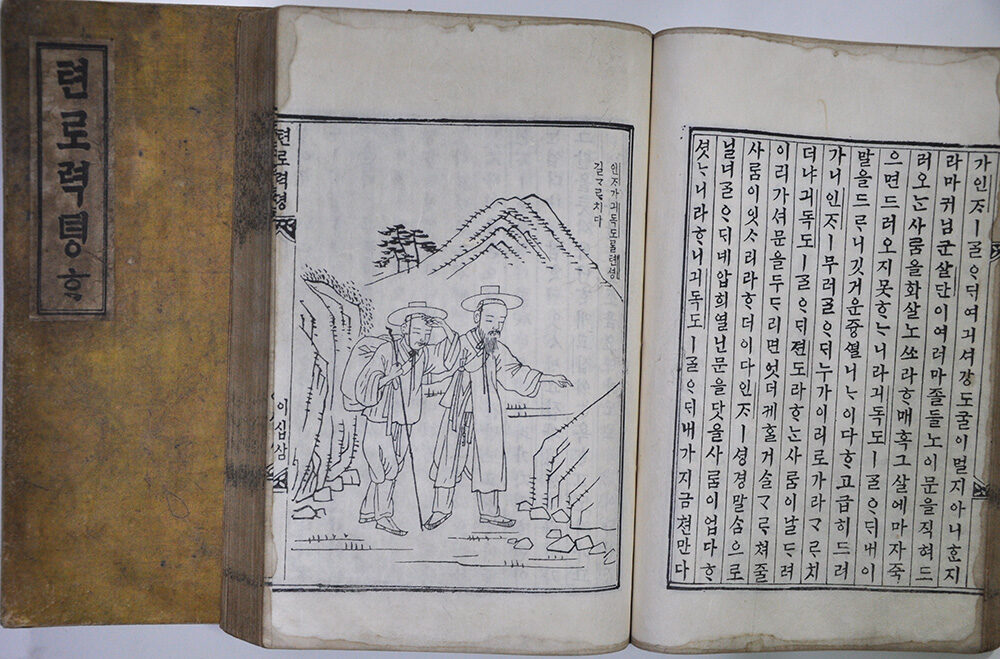 텬로력뎡 ᄒᆞ
텬로력뎡
이십삼
인ᄌᆞ가긔독도ᄅᆞᆯ텬셩
길ᄀᆞᄅᆞ치다
가인ᄌᆞㅣᄀᆞᆯᄋᆞᄃᆡ여긔셔강도굴이멀지아니ᄒᆞᆫ지
라마귀님군살단이여러마졸들노이문을직혀드
러오ᄂᆞᆫ사ᄅᆞᆷ을화살노쏘라ᄒᆞ매혹그살에마자죽
으면드러오지못ᄒᆞᄂᆞ니라긔독도ㅣᄀᆞᆯᄋᆞᄃᆡ내이
말을드ᄅᆞ니깃거운즁ᄯᅥᆯ니ᄂᆞ이다ᄒᆞ고급히드러
가니인ᄌᆞㅣ무러ᄀᆞᆯᄋᆞᄃᆡ누가이리로가라ᄀᆞᄅᆞ치
더냐긔독도ㅣᄀᆞᆯᄋᆞᄃᆡ젼도라ᄒᆞᄂᆞᆫ사ᄅᆞᆷ이날ᄃᆞ려
이리가셔문을두ᄃᆞ리면엇더케ᄒᆞᆯ거슬ᄀᆞᄅᆞ쳐줄
사ᄅᆞᆷ이잇ᄉᆞ리라ᄒᆞ더이다인ᄌᆞㅣ셩경말ᄉᆞᆷ으로
닐너ᄀᆞᆯᄋᆞᄃᆡ네압희열닌문을닷을사ᄅᆞᆷ이업다ᄒᆞ
셧ᄂᆞ니라ᄒᆞ니긔독도ㅣᄀᆞᆯᄋᆞᄃᆡ내가지금쳔만다